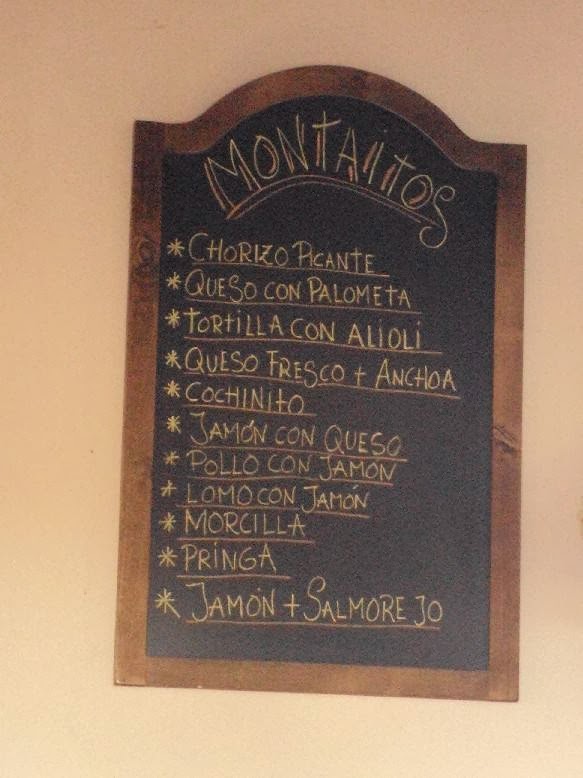 MONTAITOS
* CHORIZO PICANTE
* QUESO CON PALOMETA
* TORTILLA CON ALIOLI
* QUESO FRESCO + ANCHOA
* COCHINITO
* JAMÓN CON QUESO
* POLLO CON JAMÓN
* LOMO CON JAMÓN
* MORCILLA
* PRINGA
* JAMÓN + SALMOREJO